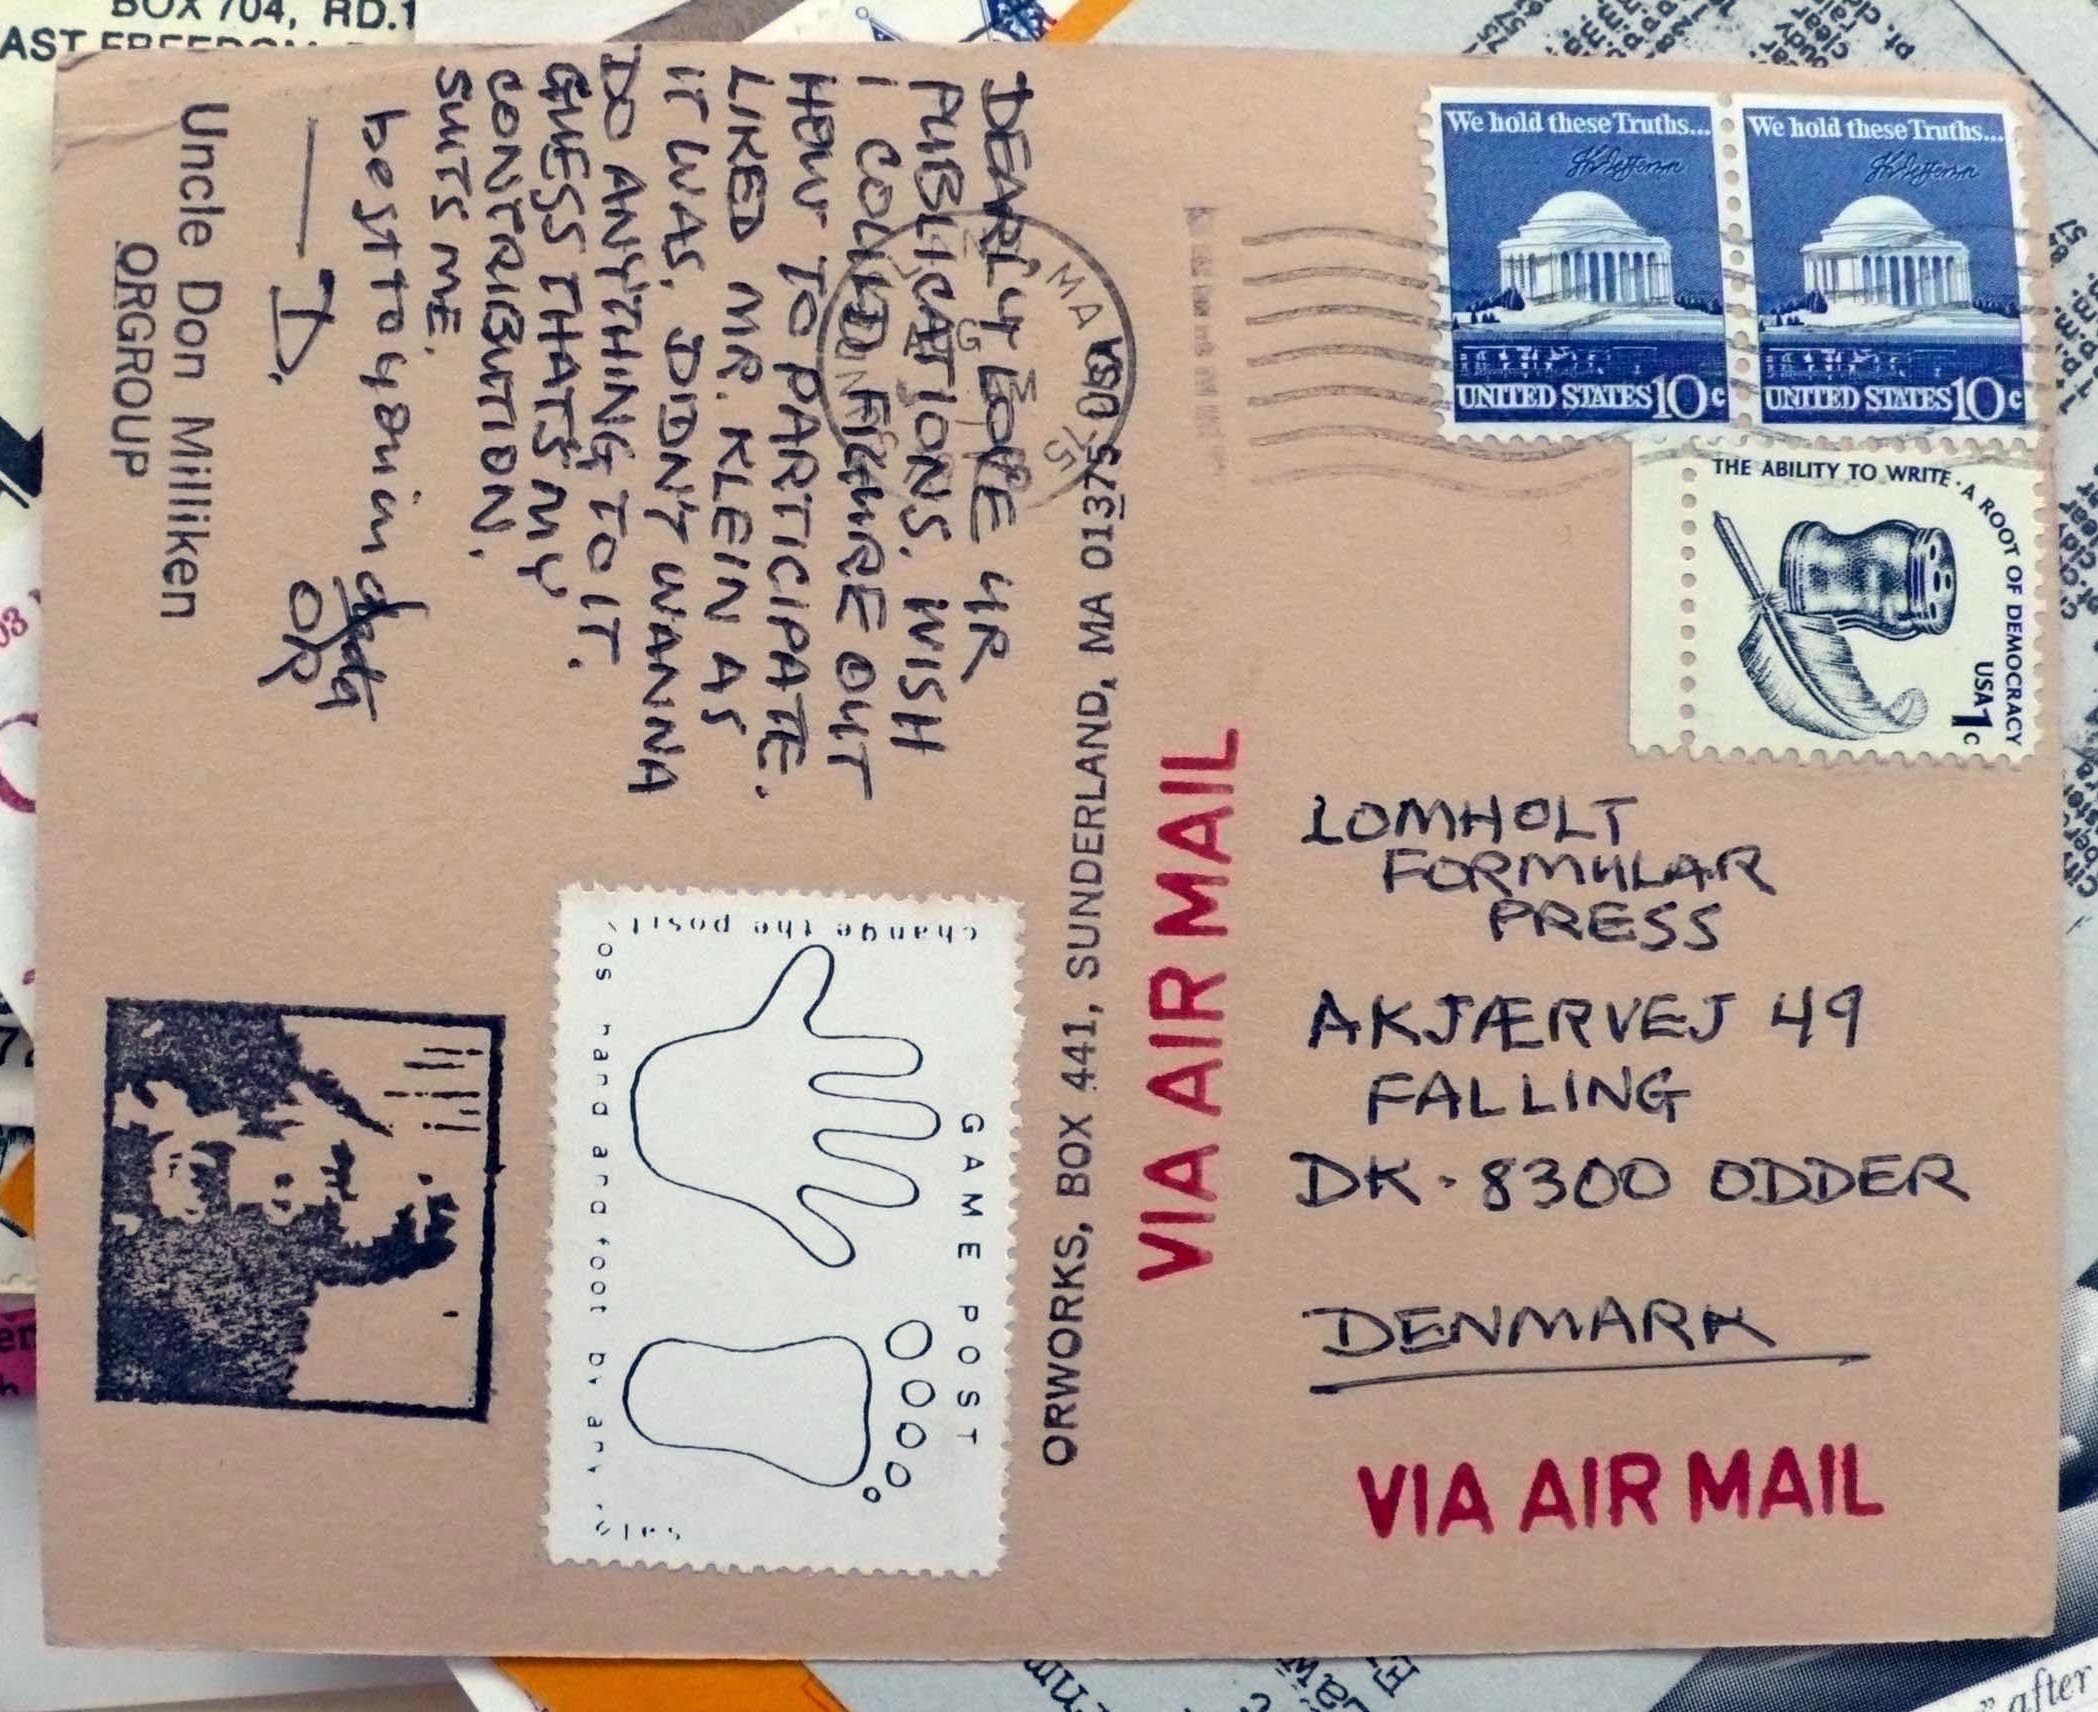 BOX 704, RD.1
We hold these Truths...
UNITED STATES 10c
We hold these Truths...
UNITED STATES 10c
THE ABILITY TO WRITE · A ROOT OF DEMOCRACY
USA 1c
LOMHOLT
FORMULAR
PRESS
AKJÆRVEJ 49
FALLING
DK · 8300 ODDER
DENMARK
VIA AIR MAIL
VIA AIR MAIL
ORWORKS, BOX 441, SUNDERLAND, MA 01375 USA
MA
DEARLY LOVE UR
PUBLICATIONS. WISH
I COULD FIGURE OUT
HOW TO PARTICIPATE.
LIKED MR. KLEIN AS
IT WAS. DIDN'T WANNA
DO ANYTHING TO IT.
GUESS THATS MY
CONTRIBUTION.
SUITS ME.
best to you in
OR
— D.
Uncle Don Milliken
ORGROUP
GAME POST
change the posit
hand and foot by any
" after